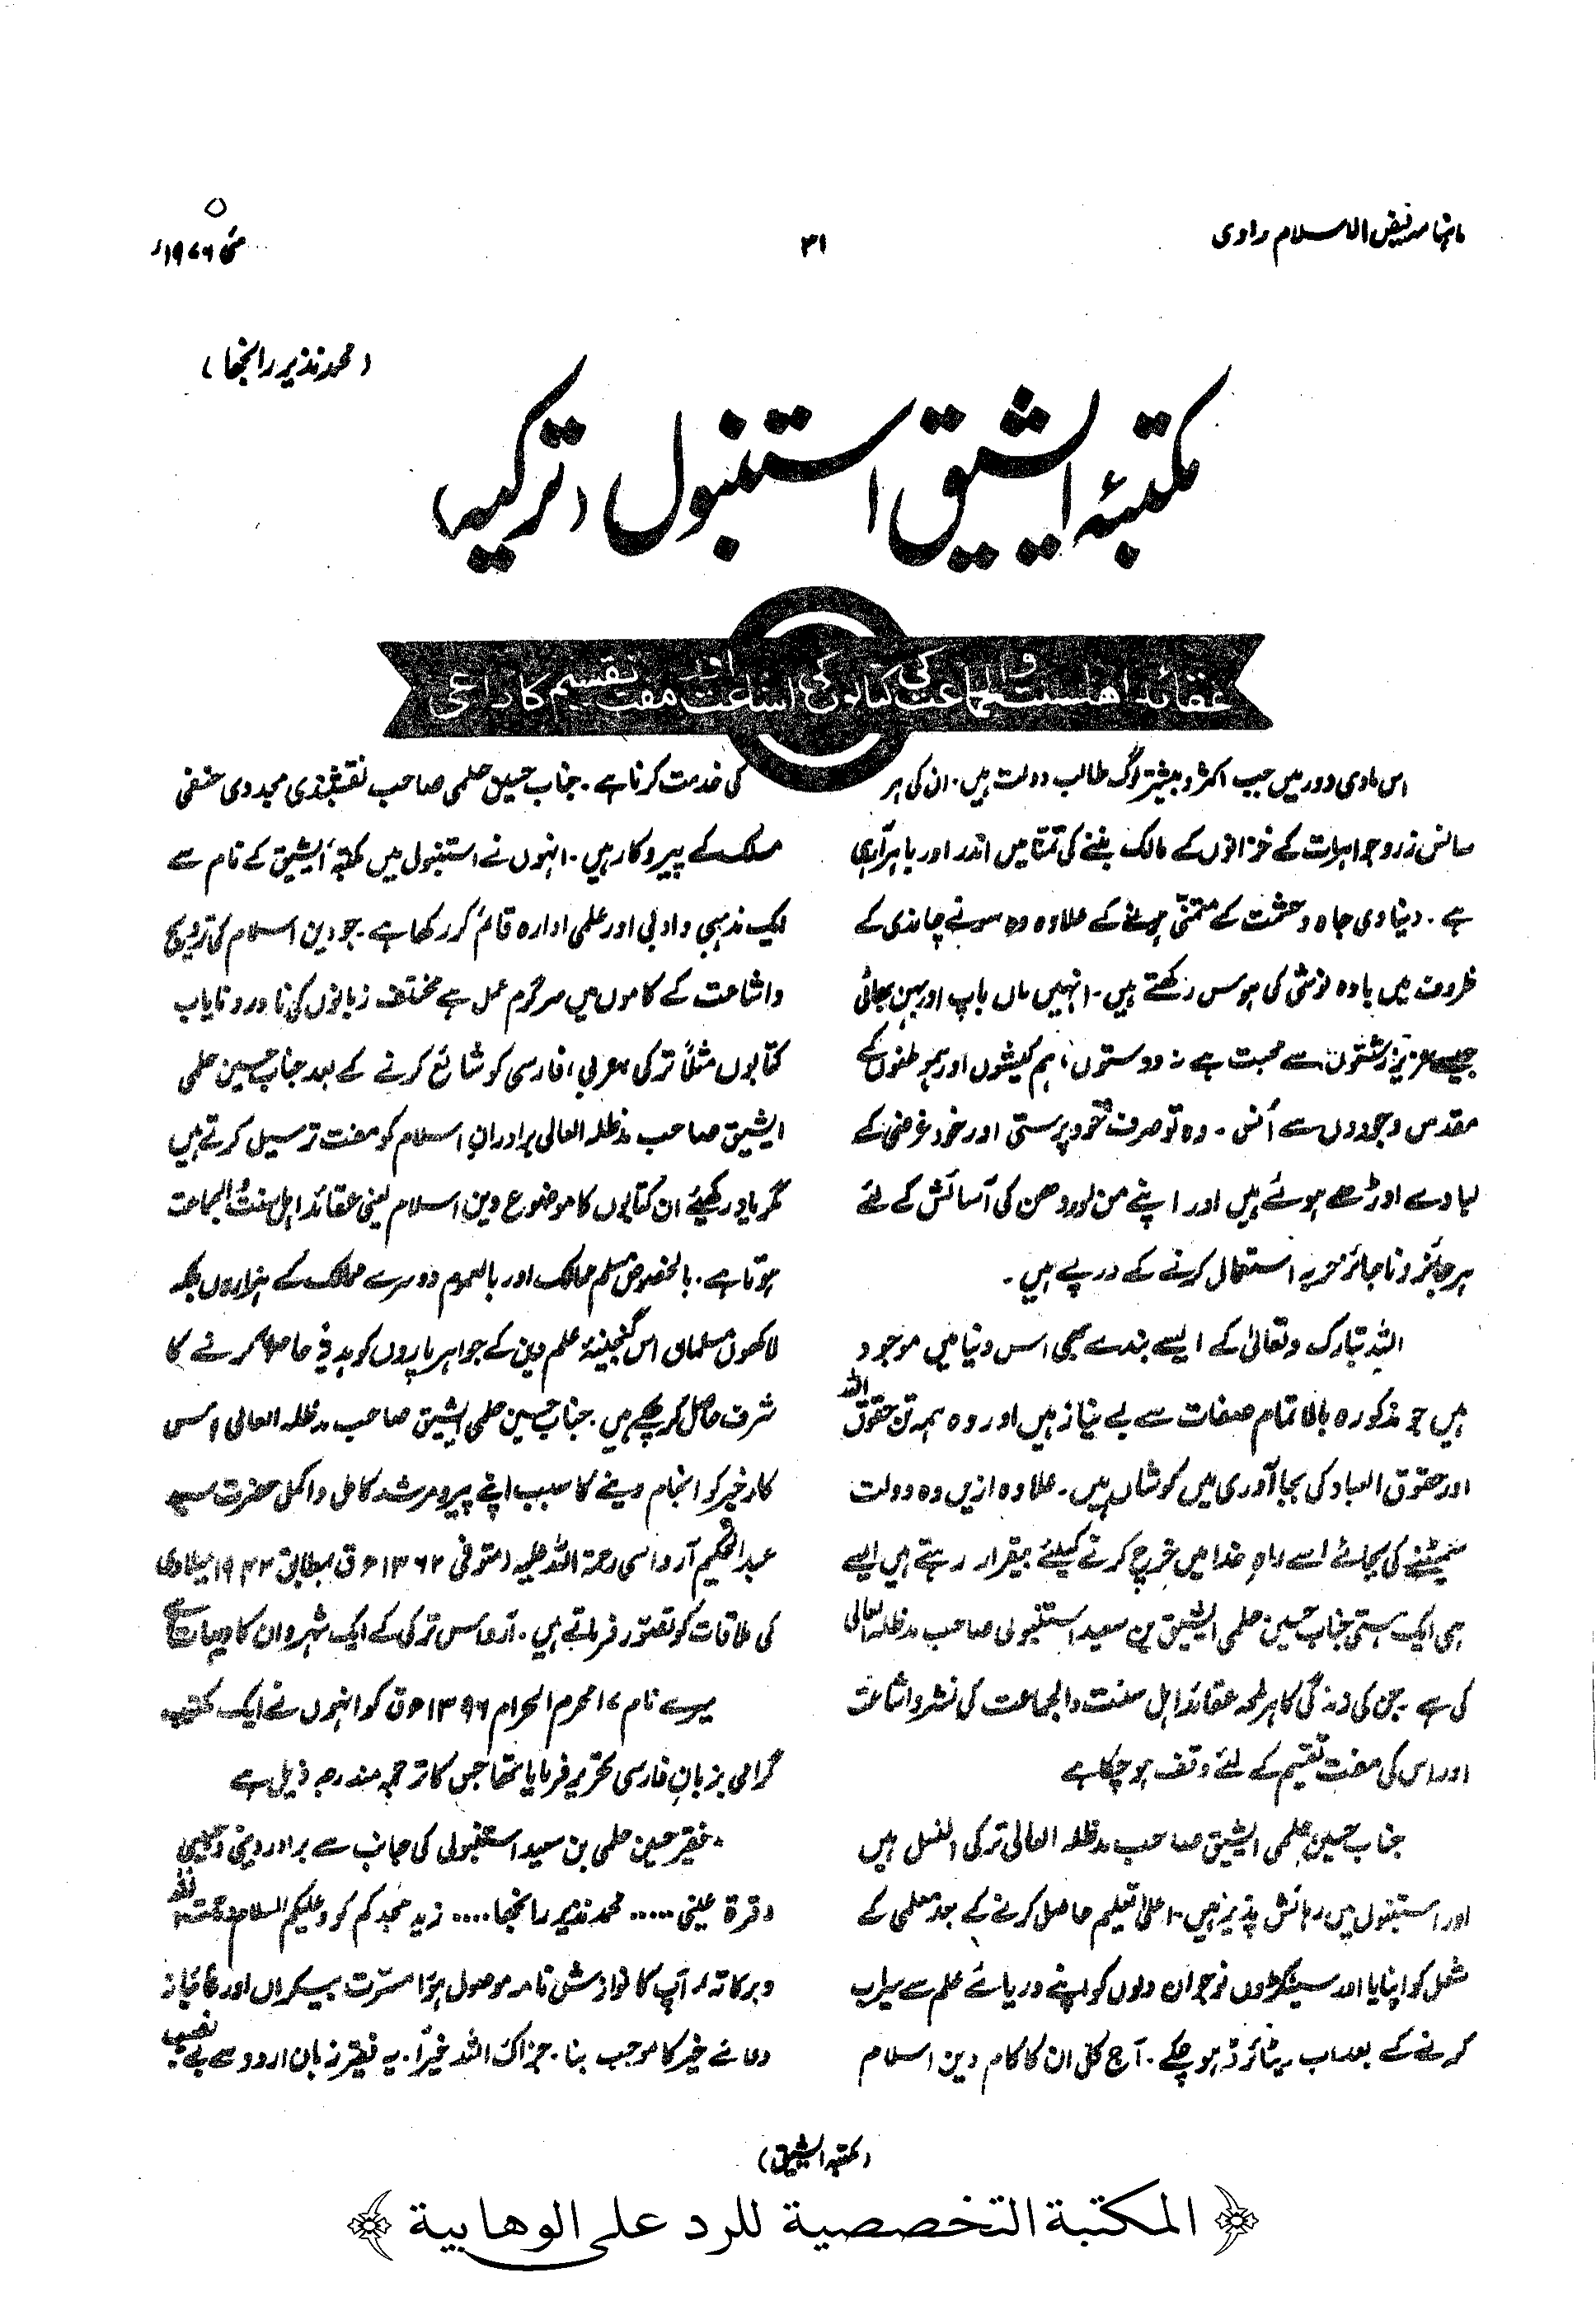 ماہنامہ فیض الاسلام راوی
۳۱
مئی ۱۹۷۶ء
(محمد نذیر رانجھا)
مکتبۂ ایشیق استنبول (ترکیہ)
عقائد اهلسنت والجماعت کی کتابوں کی اشاعت اور مفت تقسیم کا داعی
اس مادی دور میں جب اکثر و بیشتر لوگ طالب دولت ہیں۔ ان کی ہر
سانس زر و جواہرات کے خزانوں کے مالک بننے کی تمنا میں اندر اور باہر آرہی
ہے۔ دنیاوی جاہ و حشمت کے متمنّی ہونے کے علاوہ وہ سونے چاندی کے
ظروف میں بادہ نوشی کی ہوس رکھتے ہیں۔ انہیں ماں باپ اور بہن بھائی
جیسے عزیز رشتوں سے محبت ہے نہ دوستوں، ہم کیشوں اور ہموطنوں کے
مقدس وجودوں سے اُنس۔ وہ تو صرف خود پرستی اور خود غرضی کے
لبادے اوڑھے ہوئے ہیں اور اپنے من اور دھن کی آسائش کے لئے
ہر جائز و ناجائز حربہ استعمال کرنے کے درپے ہیں۔
اللہ تبارک و تعالیٰ کے ایسے بندے بھی اس دنیا میں موجود
ہیں جو مذکورہ بالا تمام صفات سے بے نیاز ہیں اور وہ ہمہ تن حقوق اللہ
اور حقوق العباد کی بجا آوری میں کوشاں ہیں۔ علاوہ ازیں وہ دولت
سمیٹنے کی بجائے اسے راہِ خدا میں خرچ کرنے کیلئے بیقرار رہتے ہیں ایسے
ہی ایک ہستی جناب حسین حلمی ایشیق بن سعید استنبولی صاحب مدظلہ العالی
کی ہے۔ جن کی زندگی کا ہر لمحہ عقائد اہل سنت والجماعت کی نشر و اشاعت
اور اس کی مفت تقسیم کے لئے وقف ہو چکا ہے
جناب حسین حلمی ایشیق صاحب مدظلہ العالی ترکی النسل ہیں
اور استنبول میں رہائش پذیر ہیں۔ اعلیٰ تعلیم حاصل کرنے کے بعد معلمی کے
شغل کو اپنایا اور سینکڑوں نوجوان دلوں کو اپنے دریائے علم سے سیراب
کرنے کے بعد اب ریٹائرڈ ہو چکے۔ آج کل ان کا کام دین اسلام
کی خدمت کرنا ہے۔ جناب حسین حلمی صاحب نقشبندی مجددی حنفی
مسلک کے پیروکار ہیں۔ انہوں نے استنبول میں مکتبۂ ایشیق کے نام سے
ایک مذہبی و ادبی اور علمی ادارہ قائم کر رکھا ہے۔ جو دین اسلام کی ترویج
و اشاعت کے کاموں میں سرگرم عمل ہے مختلف زبانوں کی نادر و نایاب
کتابوں مثلاً ترکی، عربی، فارسی کو شائع کرنے کے بعد جناب حسین حلمی
ایشیق صاحب مدظلہ العالی برادرانِ اسلام کو مفت ترسیل کرتے ہیں
مگر یاد رکھیئے ان کتابوں کا موضوع دین اسلام یعنی عقائد اہل سنت والجماعت
ہوتا ہے۔ بالخصوص مسلم ممالک اور بالعموم دوسرے ممالک کے ہزاروں بلکہ
لاکھوں مسلمان اس گنجینۂ علم دین کے جواہر پاروں کو ہدیۃً حاصل کرنے کا
شرف حاصل کر چکے ہیں۔ جناب حسین حلمی ایشیق صاحب مدظلہ العالی اس
کار خیر کو انجام دینے کا سبب اپنے پیر و مرشد کامل و اکمل حضرت سید
عبدالحکیم آرواسی رحمۃ اللہ علیہ (متوفی ۱۳۶۲ھ ق بمطابق ۱۹۴۳ میلادی
کی ملاقات کو تصور فرماتے ہیں۔ آرواس ترکی کے ایک شہر وان کا دیہات ہے
میرے نام ۱۷ محرم الحرام ۱۳۹۶ھ ق کو انہوں نے ایک مکتوب
گرامی بزبانِ فارسی تحریر فرمایا تھا جس کا ترجمہ مندرجہ ذیل ہے
"فقیر حسین حلمی بن سعید استنبولی کی جانب سے برادر دینی و یقینی
و قرۃ عینی ..... محمد نذیر رانجھا .... زید مجدکم کو وعلیکم السلام ورحمۃ اللہ
وبرکاتہ، آپ کا نوازش نامہ موصول ہوا مسرت بیکراں اور غائبانہ
دعائے خیر کا موجب بنا۔ جزاک اللہ خیراً۔ یہ فقیر زبان اردو سے بے نصیب
(مکتبہ ایشیق)
المكتبة التخصصية للرد على الوهابية